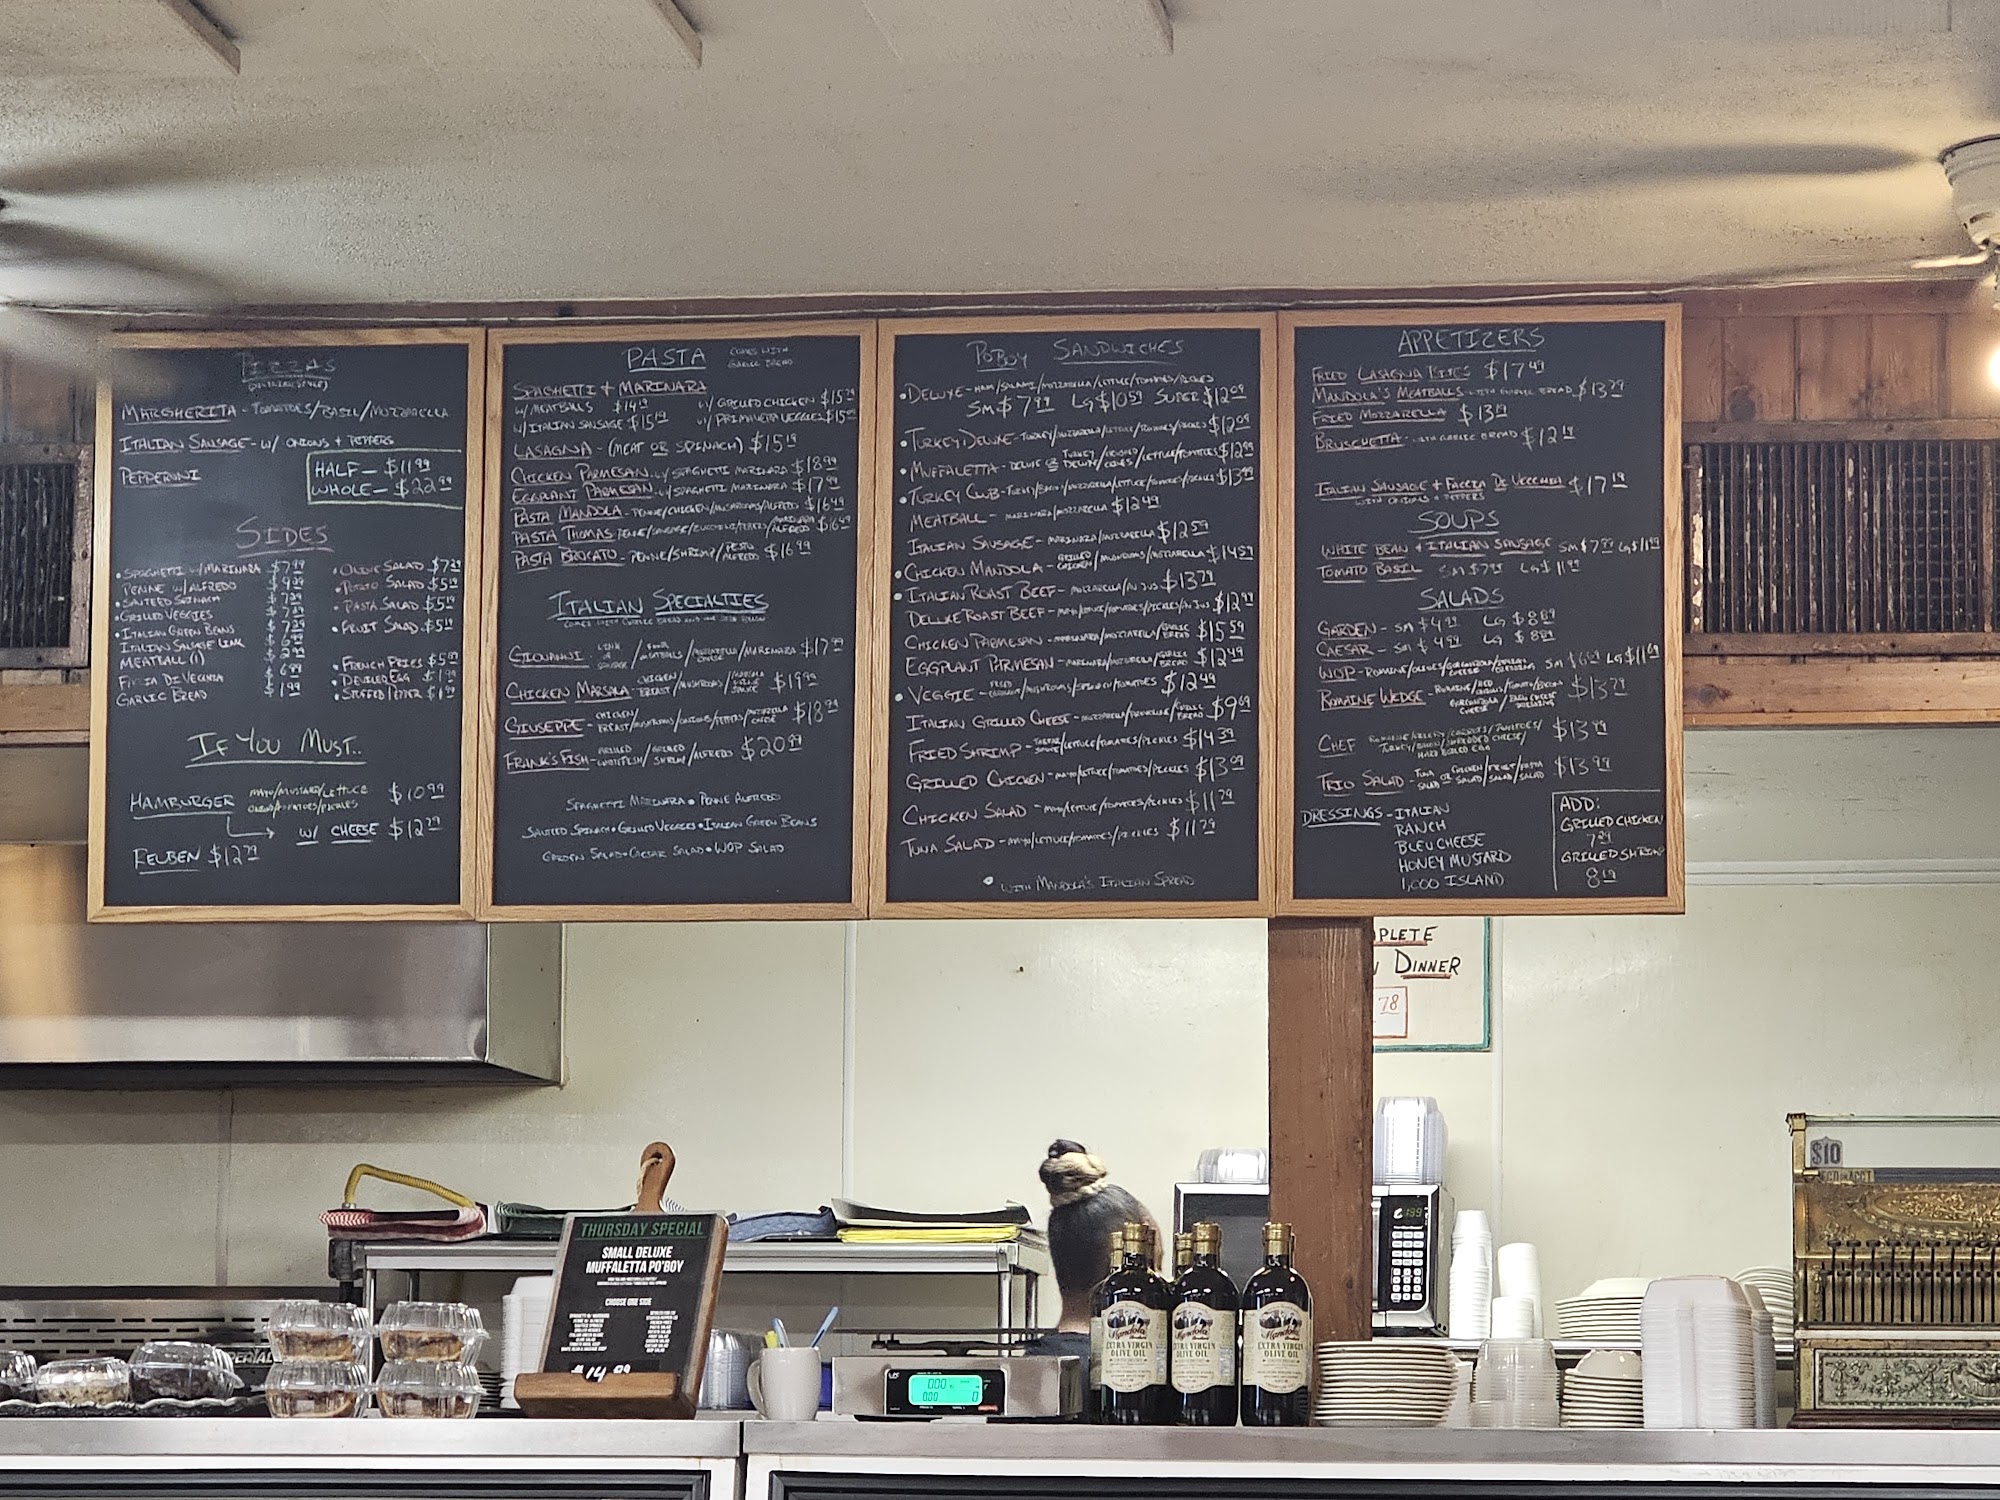 PIZZAS
(SICILIAN STYLE)
MARGHERITA - TOMATOES/BASIL/MOZZARELLA
ITALIAN SAUSAGE - W/ ONIONS + PEPPERS
PEPPERONI
HALF - $11.99
WHOLE - $22.99
SIDES
SPAGHETTI W/MARINARA $7.99
PENNE W/ALFREDO
SAUTEED SPINACH
GRILLED VEGGIES
ITALIAN GREEN BEANS
ITALIAN SAUSAGE LINK
MEATBALL (1)
FACCIA DI VECCHIA 6.99
GARLIC BREAD $1.99
OLIVE SALAD
POTATO SALAD $5.19
PASTA SALAD $5.19
FRUIT SALAD $5.19
FRENCH FRIES
DEVILED EGG $1.99
STUFFED PEPPER
IF YOU MUST..
HAMBURGER MAYO/MUSTARD/LETTUCE $10.99
ONIONS/TOMATOES/PICKLES
W/ CHEESE $12.79
REUBEN $12.79
PASTA COMES WITH
GARLIC BREAD
SPAGHETTI + MARINARA
W/ MEATBALLS W/ GRILLED CHICKEN
W/ ITALIAN SAUSAGE $15.19 W/ PRIMAVERA VEGGIES
LASAGNA - (MEAT OR SPINACH) $15.19
CHICKEN PARMESAN W/ SPAGHETTI MARINARA $18.99
EGGPLANT PARMESAN W/ SPAGHETTI MARINARA $17.99
PASTA MANDOLA - PENNE/CHICKEN/MUSHROOMS/ALFREDO $16.49
PASTA THOMAS PENNE/SAUSAGE/ZUCCHINI/PEPPERS/MARINARA ALFREDO $16.49
PASTA BROCATO - PENNE/SHRIMP/PESTO ALFREDO $16.99
ITALIAN SPECIALTIES
COMES WITH GARLIC BREAD AND ONE SIDE BELOW
GIOVANNI LINK OF SAUSAGE / FOUR MEATBALLS / MOZZARELLA CHEESE / MARINARA $17.99
CHICKEN MARSALA CHICKEN BREAST/MUSHROOMS/MARSALA SAUCE $19.99
GIUSEPPE - CHICKEN BREAST/MUSHROOMS/ONIONS/PEPPERS/MOZZARELLA CHEESE $18.99
FRANK'S FISH - GRILLED / GRILLED SHRIMP / ALFREDO
SPAGHETTI MARINARA • PENNE ALFREDO
SAUTEED SPINACH • GRILLED VEGGIES • ITALIAN GREEN BEANS
GARDEN SALAD • CAESAR SALAD • WOP SALAD
POBOY SANDWICHES
DELUXE - HAM/SALAMI/MOZZARELLA/LETTUCE/TOMATOES/PICKLES
SM $7.99 LG $10.59 SUPER $12.09
TURKEY DELUXE - TURKEY/MOZZARELLA/LETTUCE/TOMATOES/PICKLES $12.09
MUFFALETTA - DELUXE OR TURKEY DELUXE/ $12.99
TURKEY CLUB - TURKEY/BACON/MOZZARELLA/LETTUCE/TOMATOES/PICKLES $13.99
MEATBALL - MARINARA/MOZZARELLA $12.49
ITALIAN SAUSAGE - MARINARA/MOZZARELLA $12.59
CHICKEN MANDOLA - GRILLED CHICKEN/MUSHROOMS/MOZZARELLA $14.59
ITALIAN ROAST BEEF - MOZZARELLA/AU JUS $13.79
DELUXE ROAST BEEF - MAYO/LETTUCE/TOMATOES/PICKLES/AU JUS $12.99
CHICKEN PARMESAN - MARINARA/MOZZARELLA/GARLIC BREAD $15.59
EGGPLANT PARMESAN - MARINARA/MOZZARELLA/GARLIC BREAD $12.49
VEGGIE - FRIED EGGPLANT/MUSHROOMS/SPINACH/TOMATOES $12.49
ITALIAN GRILLED CHEESE - MOZZARELLA/PROVOLONE/GARLIC BREAD $9.69
FRIED SHRIMP - TARTAR SAUCE/LETTUCE/TOMATOES/PICKLES $14.39
GRILLED CHICKEN - MAYO/LETTUCE/TOMATOES/PICKLES $13.09
CHICKEN SALAD - MAYO/LETTUCE/TOMATOES/PICKLES $11.79
TUNA SALAD - MAYO/LETTUCE/TOMATOES/PICKLES $11.79
• WITH MANDOLA'S ITALIAN SPREAD
APPETIZERS
FRIED LASAGNA BITES $17.49
MANDOLA'S MEATBALLS - WITH GARLIC BREAD $13.79
FRIED MOZZARELLA
BRUSCHETTA - WITH GARLIC BREAD $12.19
ITALIAN SAUSAGE + FACCIA DI VECCHIA $17.19
WITH ONIONS + PEPPERS
SOUPS
WHITE BEAN + ITALIAN SAUSAGE SM $7.99 LG $11.99
TOMATO BASIL SM $7.99 LG $11.99
SALADS
GARDEN - SM $4.99 LG $8.89
CAESAR - SM $4.99 LG $8.89
WOP - ROMAINE/OLIVES/GORGONZOLA/ITALIAN DRESSING SM LG $11.69
ROMAINE WEDGE - ROMAINE/RED ONIONS/TOMATO/BACON $13.79
GORGONZOLA CHEESE/BLEU CHEESE DRESSING
CHEF ROMAINE/CELERY/CARROTS/TOMATOES/ $13.99
TURKEY/BACON/SHREDDED CHEESE/
HARD BOILED EGG
TRIO SALAD - TUNA SALAD OR CHICKEN SALAD/FRUIT SALAD/PASTA SALAD $13.99
DRESSINGS - ITALIAN
RANCH
BLEU CHEESE
HONEY MUSTARD
1,000 ISLAND
ADD:
GRILLED CHICKEN
7.29
GRILLED SHRIMP
8.19
PLETE
DINNER
78
THURSDAY SPECIAL
SMALL DELUXE
MUFFALETTA PO'BOY
CHOOSE ONE SIDE
14.99
Mandola
EXTRA VIRGIN
OLIVE OIL
Mandola
EXTRA VIRGIN
OLIVE OIL
Mandola
EXTRA VIRGIN
OLIVE OIL
$10